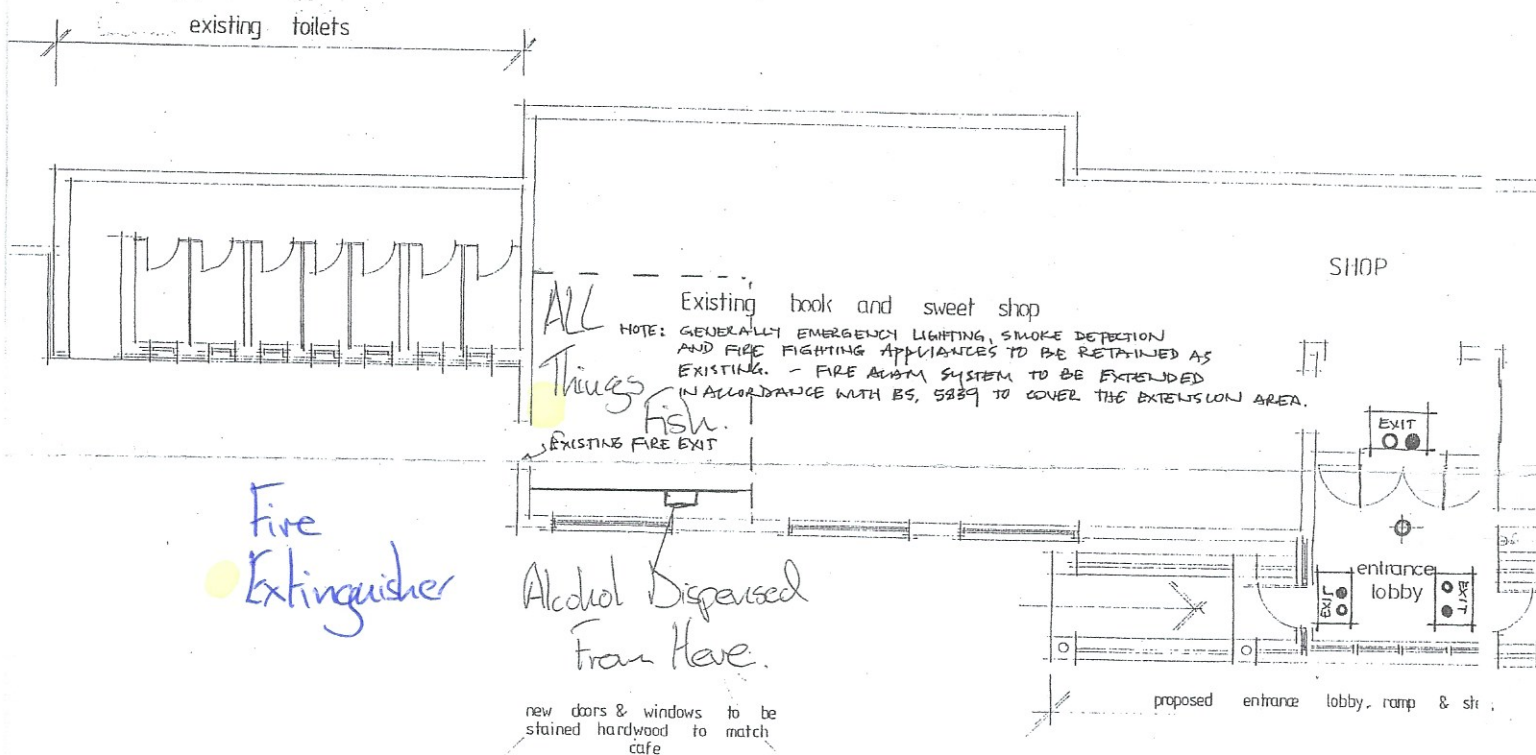 existing toilets
SHOP
ALL
Things
Fish.
Existing book and sweet shop
NOTE: GENERALLY EMERGENCY LIGHTING, SMOKE DETECTION
AND FIRE FIGHTING APPLIANCES TO BE RETAINED AS
EXISTING. - FIRE ALARM SYSTEM TO BE EXTENDED
IN ACCORDANCE WITH BS, 5839 TO COVER THE EXTENSION AREA.
EXISTING FIRE EXIT
EXIT
Fire
Extinguisher
Alcohol Dispensed
From Here.
entrance
lobby
EXIT
EXIT
new doors & windows to be
stained hardwood to match
cafe
proposed entrance lobby, ramp &